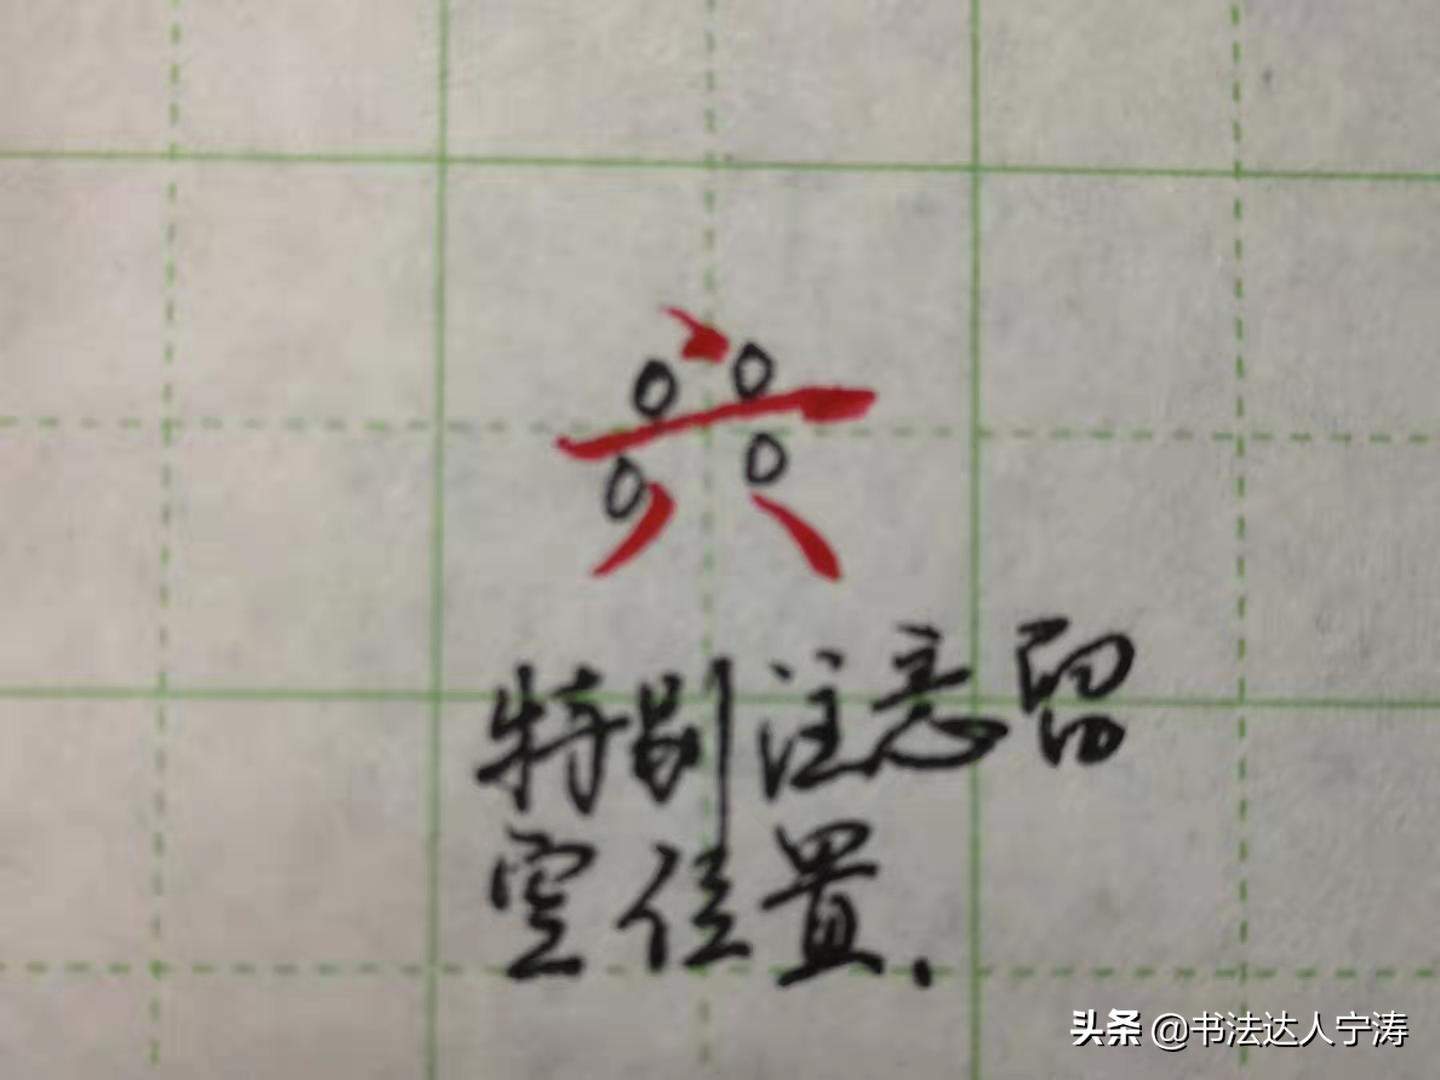 六
特别注意留
空位置.
头条 @书法达人宁涛